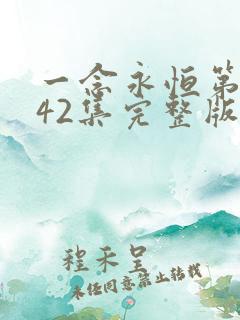 一念永恒第
42集完整版
程禾呈
未经同意禁止转载